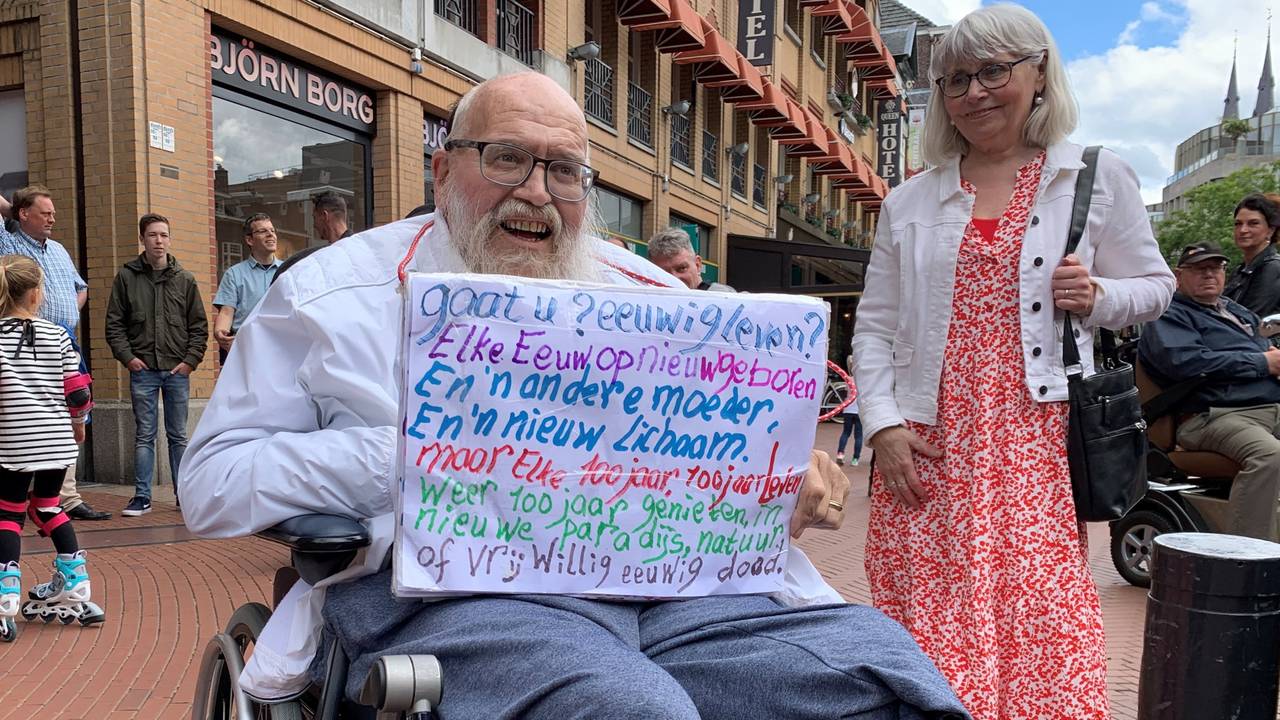 BJÖRN BORG
BJÖ
HOTEL
QUEEN
HOTEL
gaat u ? eeuwig leven?
Elke Eeuw opnieuw geboren
En 'n andere moeder,
En 'n nieuw Lichaam.
maar Elke 100 jaar, 100 jaar Leven
weer 100 jaar genieten, in
nieuwe paradijs, natuur,
of vrij willig eeuwig dood.